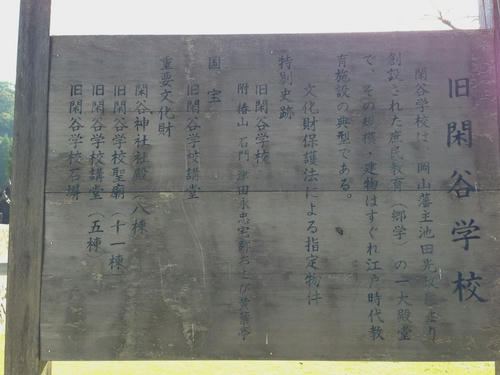 旧閑谷学校
閑谷学校は、岡山藩主池田光政により
創設された庶民教育（郷学）の一大殿堂
で、その規模・建物はすぐれ江戸時代教
育施設の典型である。
文化財保護法による指定物件
特別史跡
旧閑谷学校
附 椿山 石門 津田永忠宅跡および黄葉亭
国宝
旧閑谷学校講堂
重要文化財
閑谷神社社殿（八棟）
旧閑谷学校聖廟（十一棟）
旧閑谷学校講堂（五棟）
旧閑谷学校石塀